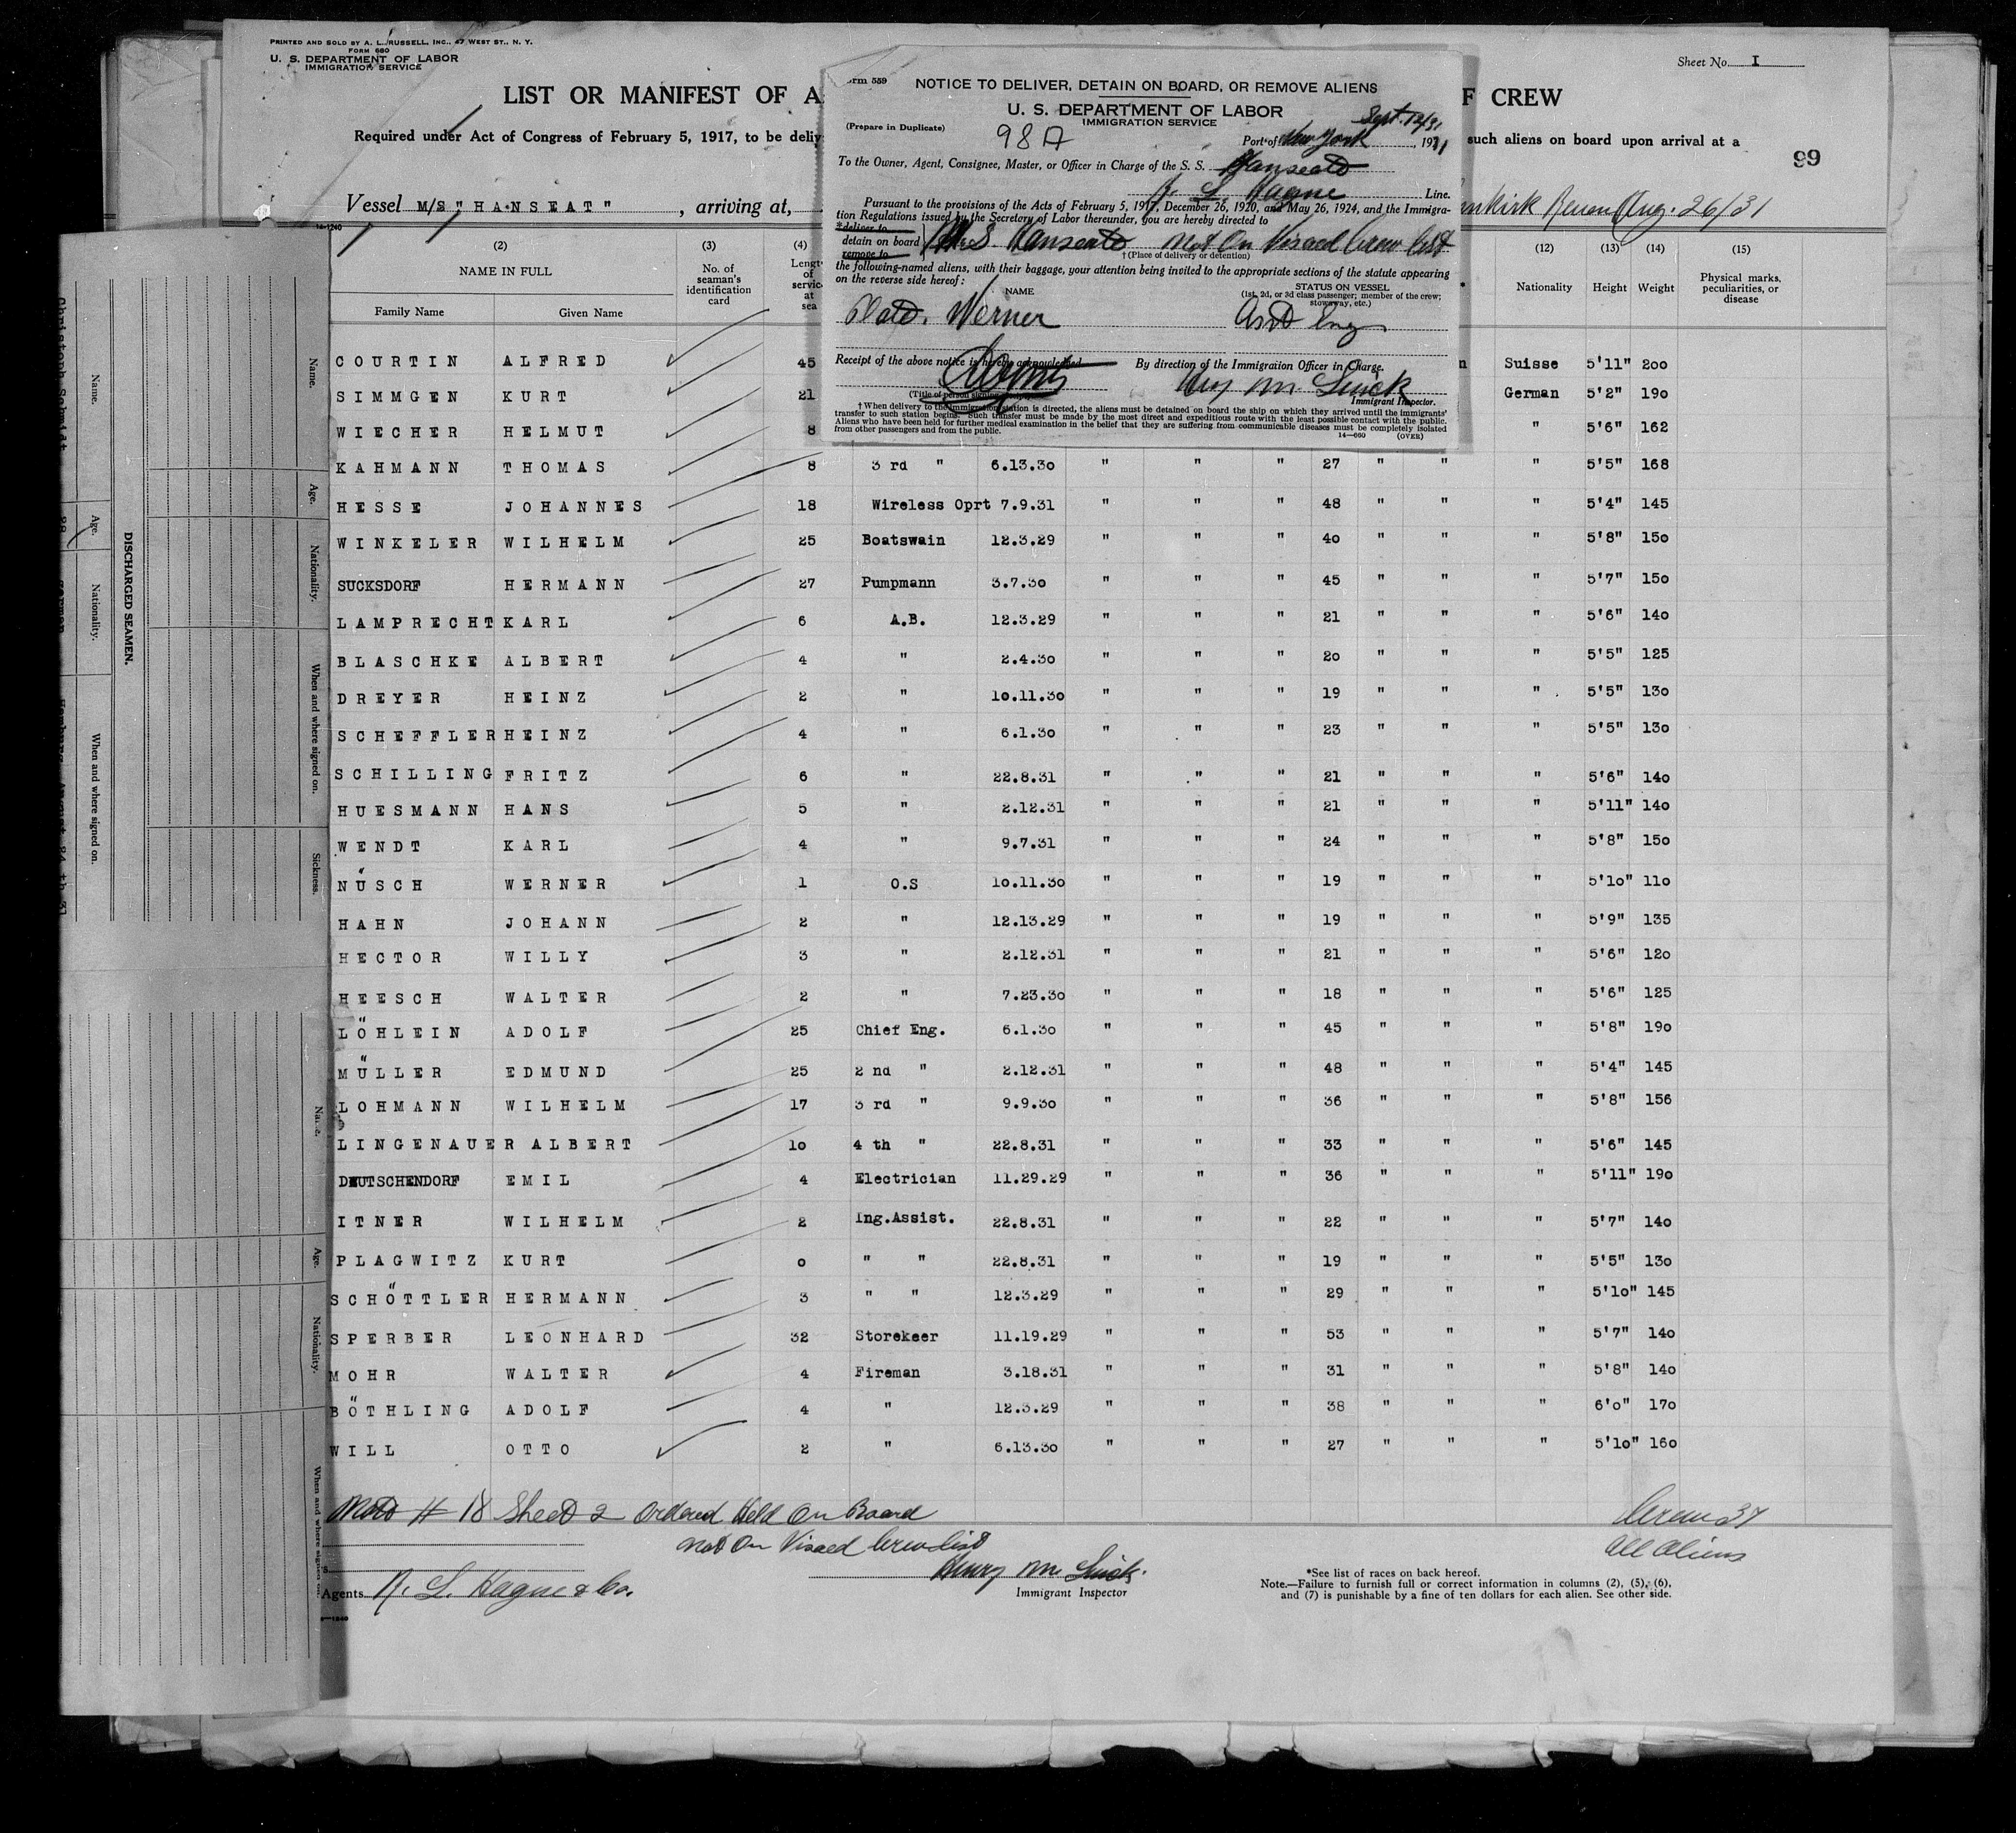 PRINTED AND SOLD BY A. L. RUSSELL, INC., 47 WEST ST., N. Y.
FORM 680
U. S. DEPARTMENT OF LABOR
IMMIGRATION SERVICE
Sheet No. I
LIST OR MANIFEST OF A
F CREW
Required under Act of Congress of February 5, 1917, to be deliv
such aliens on board upon arrival at a
99
Vessel M/S "HANSEAT", arriving at,
Aug. 26/31
14-1240
orm 559
NOTICE TO DELIVER, DETAIN ON BOARD, OR REMOVE ALIENS
U. S. DEPARTMENT OF LABOR
IMMIGRATION SERVICE
(Prepare in Duplicate)
98A
Sept. 12/31
Port of New York, 1931
To the Owner, Agent, Consignee, Master, or Officer in Charge of the S. S. Hanseat
R. L. Hague Line.
Pursuant to the provisions of the Acts of February 5, 1917, December 26, 1920, and May 26, 1924, and the Immigra-
tion Regulations issued by the Secretary of Labor thereunder, you are hereby directed to
*deliver to
detain on board
remove to
M/S Hanseat not On Visaed Crew list
† (Place of delivery or detention)
the following-named aliens, with their baggage, your attention being invited to the appropriate sections of the statute appearing
on the reverse side hereof:
NAME
STATUS ON VESSEL
(1st, 2d, or 3d class passenger; member of the crew; stowaway, etc.)
Werner
Asst Eng
Receipt of the above notice is hereby acknowledged
By direction of the Immigration Officer in Charge.
Hy M. Luick
(Title of person signing
Immigrant Inspector.
† When delivery to the immigration station is directed, the aliens must be detained on board the ship on which they arrived until the immigrants'
transfer to such station begins. Such transfer must be made by the most direct and expeditious route with the least possible contact with the public.
Aliens who have been held for further medical examination in the belief that they are suffering from communicable diseases must be completely isolated
from other passengers and from the public.
14—660 (OVER)
(2) (3) (4) (12) (13) (14) (15)
NAME IN FULL
Family Name Given Name
No. of seaman's identification card
Lengt of servic at sea
Nationality Height Weight
Physical marks, peculiarities, or disease
COURTIN ALFRED 45 n Suisse 5'11" 200
SIMMGEN KURT 21 German 5'2" 190
WIECHER HELMUT 8 " 5'6" 162
KAHMANN THOMAS 8 3 rd " 6.13.30 " " " 27 " " " 5'5" 168
HESSE JOHANNES 18 Wireless Oprt 7.9.31 " " " 48 " " " 5'4" 145
WINKELER WILHELM 25 Boatswain 12.3.29 " " " 40 " " " 5'8" 150
SUCKSDORF HERMANN 27 Pumpmann 3.7.30 " " " 45 " " " 5'7" 150
LAMPRECHT KARL 6 A.B. 12.3.29 " " " 21 " " " 5'6" 140
BLASCHKE ALBERT 4 " 2.4.30 " " " 20 " " " 5'5" 125
DREYER HEINZ 2 " 10.11.30 " " " 19 " " " 5'5" 130
SCHEFFLER HEINZ 4 " 6.1.30 " " " 23 " " " 5'5" 130
SCHILLING FRITZ 6 " 22.8.31 " " " 21 " " " 5'6" 140
HUESMANN HANS 5 " 2.12.31 " " " 21 " " " 5'11" 140
WENDT KARL 4 " 9.7.31 " " " 24 " " " 5'8" 150
NÜSCH WERNER 1 O.S 10.11.30 " " " 19 " " " 5'10" 110
HAHN JOHANN 2 " 12.13.29 " " " 19 " " " 5'9" 135
HECTOR WILLY 3 " 2.12.31 " " " 21 " " " 5'6" 120
HEESCH WALTER 2 " 7.23.30 " " " 18 " " " 5'6" 125
LÖHLEIN ADOLF 25 Chief Eng. 6.1.30 " " " 45 " " " 5'8" 190
MÜLLER EDMUND 25 2 nd " 2.12.31 " " " 48 " " " 5'4" 145
LOHMANN WILHELM 17 3 rd " 9.9.30 " " " 36 " " " 5'8" 156
LINGENAUER ALBERT 10 4 th " 22.8.31 " " " 33 " " " 5'6" 145
DEUTSCHENDORF EMIL 4 Electrician 11.29.29 " " " 36 " " " 5'11" 190
ITNER WILHELM 2 Ing.Assist. 22.8.31 " " " 22 " " " 5'7" 140
PLAGWITZ KURT 0 " " 22.8.31 " " " 19 " " " 5'5" 130
SCHÖTTLER HERMANN 3 " " 12.3.29 " " " 29 " " " 5'10" 145
SPERBER LEONHARD 32 Storekeer 11.19.29 " " " 53 " " " 5'7" 140
MOHR WALTER 4 Fireman 3.18.31 " " " 31 " " " 5'8" 140
BÖTHLING ADOLF 4 " 12.3.29 " " " 38 " " " 6'0" 170
WILL OTTO 2 " 6.13.30 " " " 27 " " " 5'10" 160
Note # 18 Sheet 2 Ordered Held On Board
not On Visaed Crew list
Crew 37
All Aliens
Henry M. Luick.
Immigrant Inspector
Agents R. L. Hague & Co.
*See list of races on back hereof.
Note.—Failure to furnish full or correct information in columns (2), (5), (6),
and (7) is punishable by a fine of ten dollars for each alien. See other side.
DISCHARGED SEAMEN.
Name. Age. Nationality. When and where signed on.
Christoph Schmidt
Name. Age. Nationality. When and where signed on. Sickness.
Name. Age. Nationality. When and where signed on.